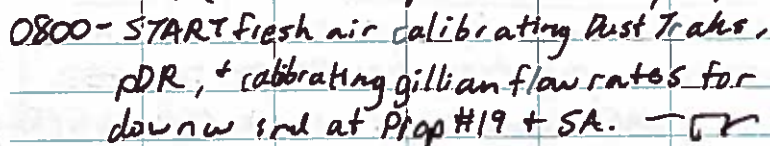 0800- START fresh air calibrating Dust Traks,
pDR, + calibrating gillian flow rates for
downwind at Prop #19 + SA. —